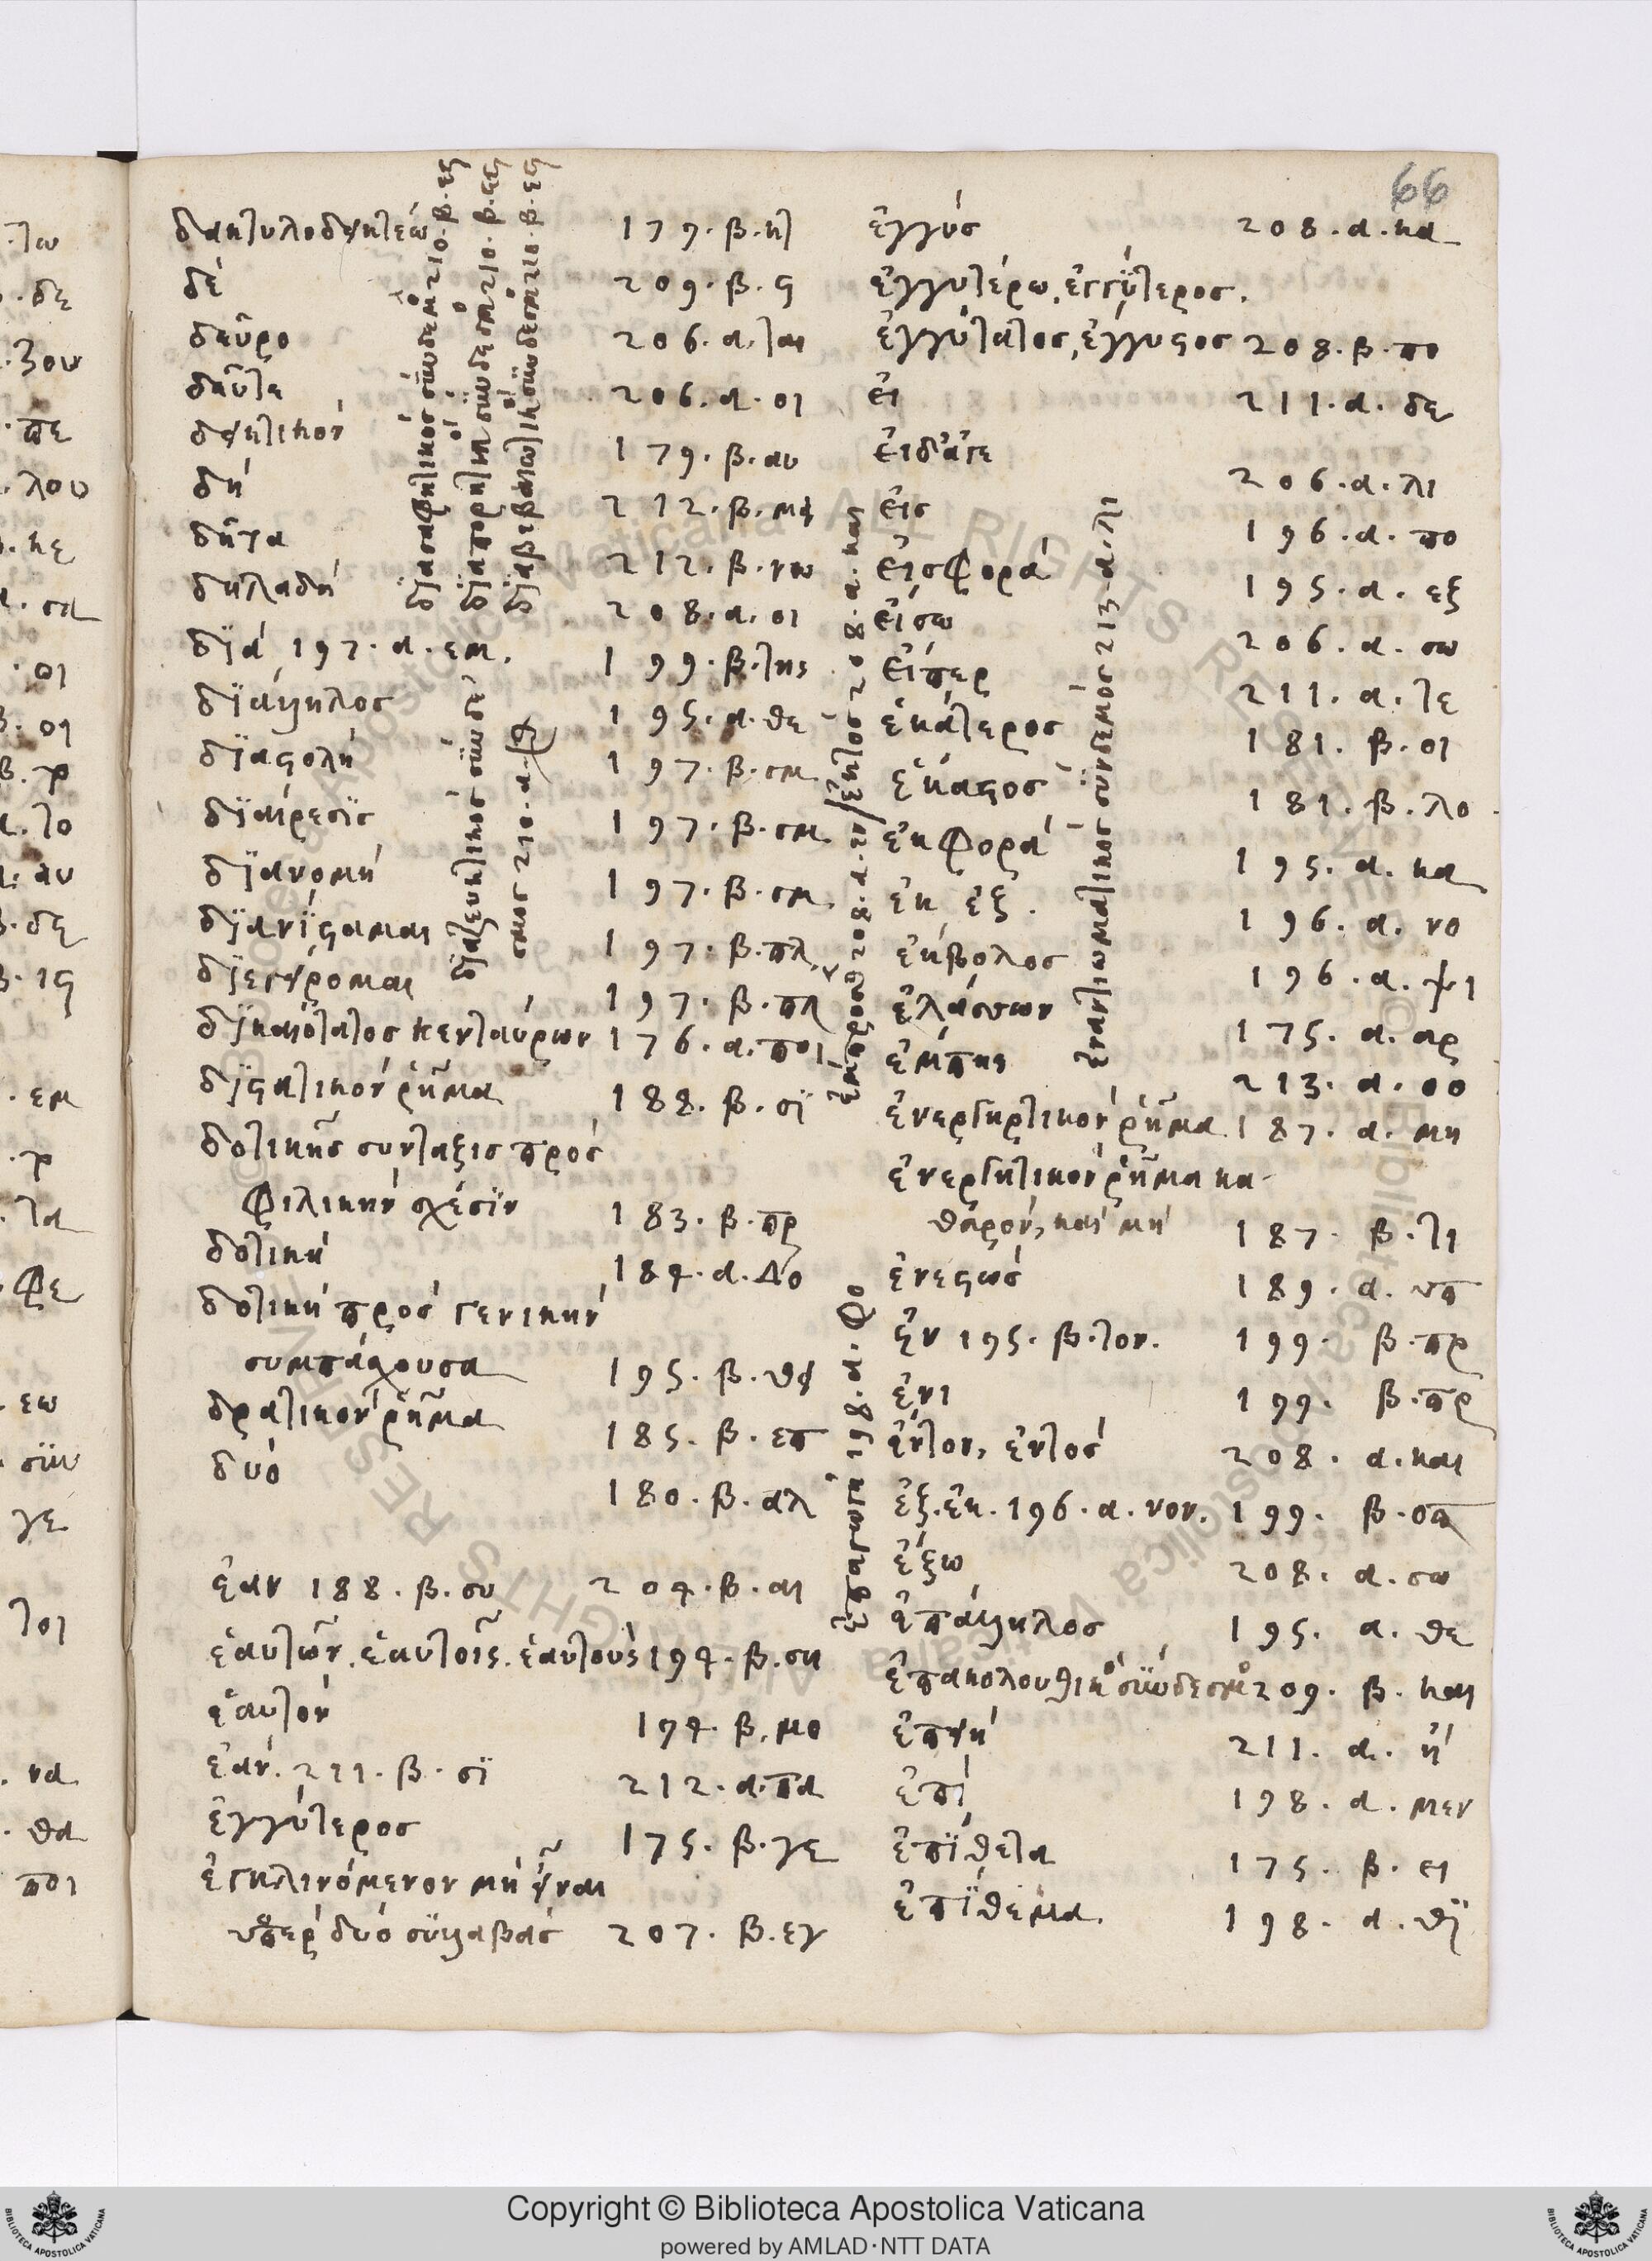 66
δακτυλοδεικτέω 179. β. κτ
δέ 209. β. ϛ
δεῦρο 206. α. ται
δεῦτε 206. α. οι
δεικτικόν 179. β. αυ
δή 212. β. μει
δῆτα 212. β. νω
δηλαδή 208. α. οι
διά 197. α. εμ. 199. β. της
διάψηλος 195. α. θε
διαστολή 197. β. σμ
διαίρεσϊς 197. β. σμ
διανομή 197. β. σμ
διανίσταμαι 197. β. πλ
διεγείρομαι 197. β. πλ
δϊκαιότατος κενταύρων 176. α. ποι
διστατικόν ῥῆμα 188. β. σϊ
δοτικῆς συνταξις πρός
φιλικήν σχέσϊν 183. β. πρ
δοτική 184. α. Δο
δοτική πρός γενικήν
συμπάσχουσα 195. β. θει
δρατικόν ῥῆμα 185. β. επ
δυό 180. β. αλ
ἐαν 188. β. συ 204. β. αι
ἑαυτῶν. ἑαυτοῖς. ἑαυτούς 194. β. ση
ἑαυτόν 194. β. μο
ἐάν. 211. β. σϊ 212. α. πα
ἐγγύτερος 175. β. γε
ἐγκλινόμενον μή εἶναι
ὑπερ δυό συλλαβάς 207. β. εγ
διασαφητικός σύνδεμ 210. β. εϛ
διαπορητικοί σύνδεσμοι 210. β. εϛ
διαβεβαιωτικοί σύνδεσμοι 211. β. εϛ
διαζευκτικός σύνδε
σμος 210. α. φ
ἐγγύς 208. α. κα
ἐγγυτέρω, ἐγγύτερος.
ἐγγύτατος, ἔγγυστος 208. β. πο
εἰ 211. α. δε
εἰδ' ἄγε 206. α. λι
εἰς 196. α. πο
εἰσφορά 195. α. εξ
εἴσω 206. α. σω
εἴπερ 211. α. τε
ἑκάτερος 181. β. οι
ἕκαστος 181. β. λο
ἐκφορά 195. α. κα
ἐκ ἐξ. 196. α. νο
ἐκβολος 196. α. ψι
ἐλάσσων 175. α. αρ
ἔμπης 213. α. οο
ἐνεργητικόν ῥῆμα 187. α. μη
ἐνεργητικόν ῥῆμα κα-
θαρόν, καί μή 187. β. τι
ἐνεστώς 189. α. υπ
ἐν 195. β. τον. 199. β. πρ
ἐνι 199. β. πρ
ἐντον, ἐντός 208. α. και
ἐξ. ἐκ. 196. α. νον. 199. β. οπ
ἔξω 208. α. σω
ἐπάψηλος 195. α. θε
ἐπακολουθικός σύνδεσμος 209. β. και
ἐπεί 211. α. ἡ
ἐπί 198. α. μεν
ἐπίθετα 175. β. ει
ἐπίθεμα. 198. α. θϊ
ἔμπροσθεν 208. α. εν / ἐκτός 208. α. και
ἐναντιωματικός σύνδεμος 213. α. λι
198. α. φο